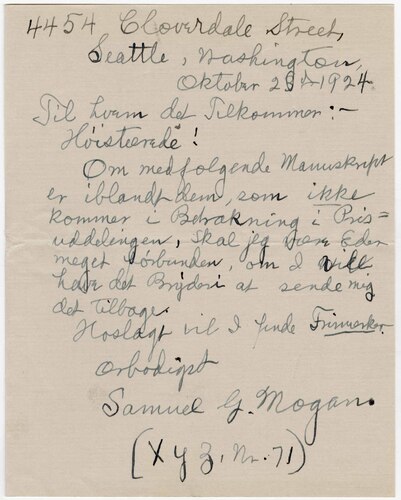 4454 Cloverdale Street,
Seattle, Washington,
Oktober 23 - 1924
Til hvem det Tilkommer:-
Høistærede!
Om medfølgende Manuskript
er iblandt dem, som ikke
kommer i Betrakning i Pris=
uddelingen, skal jeg være Eder
meget forbunden, om I vill
have det Bryderi at sende mig
det tilbage.
Hoslagt vil I finde Frimerker.
Ærbødigst
Samuel G. Mogan.
(X Y Z, Nr. 71)